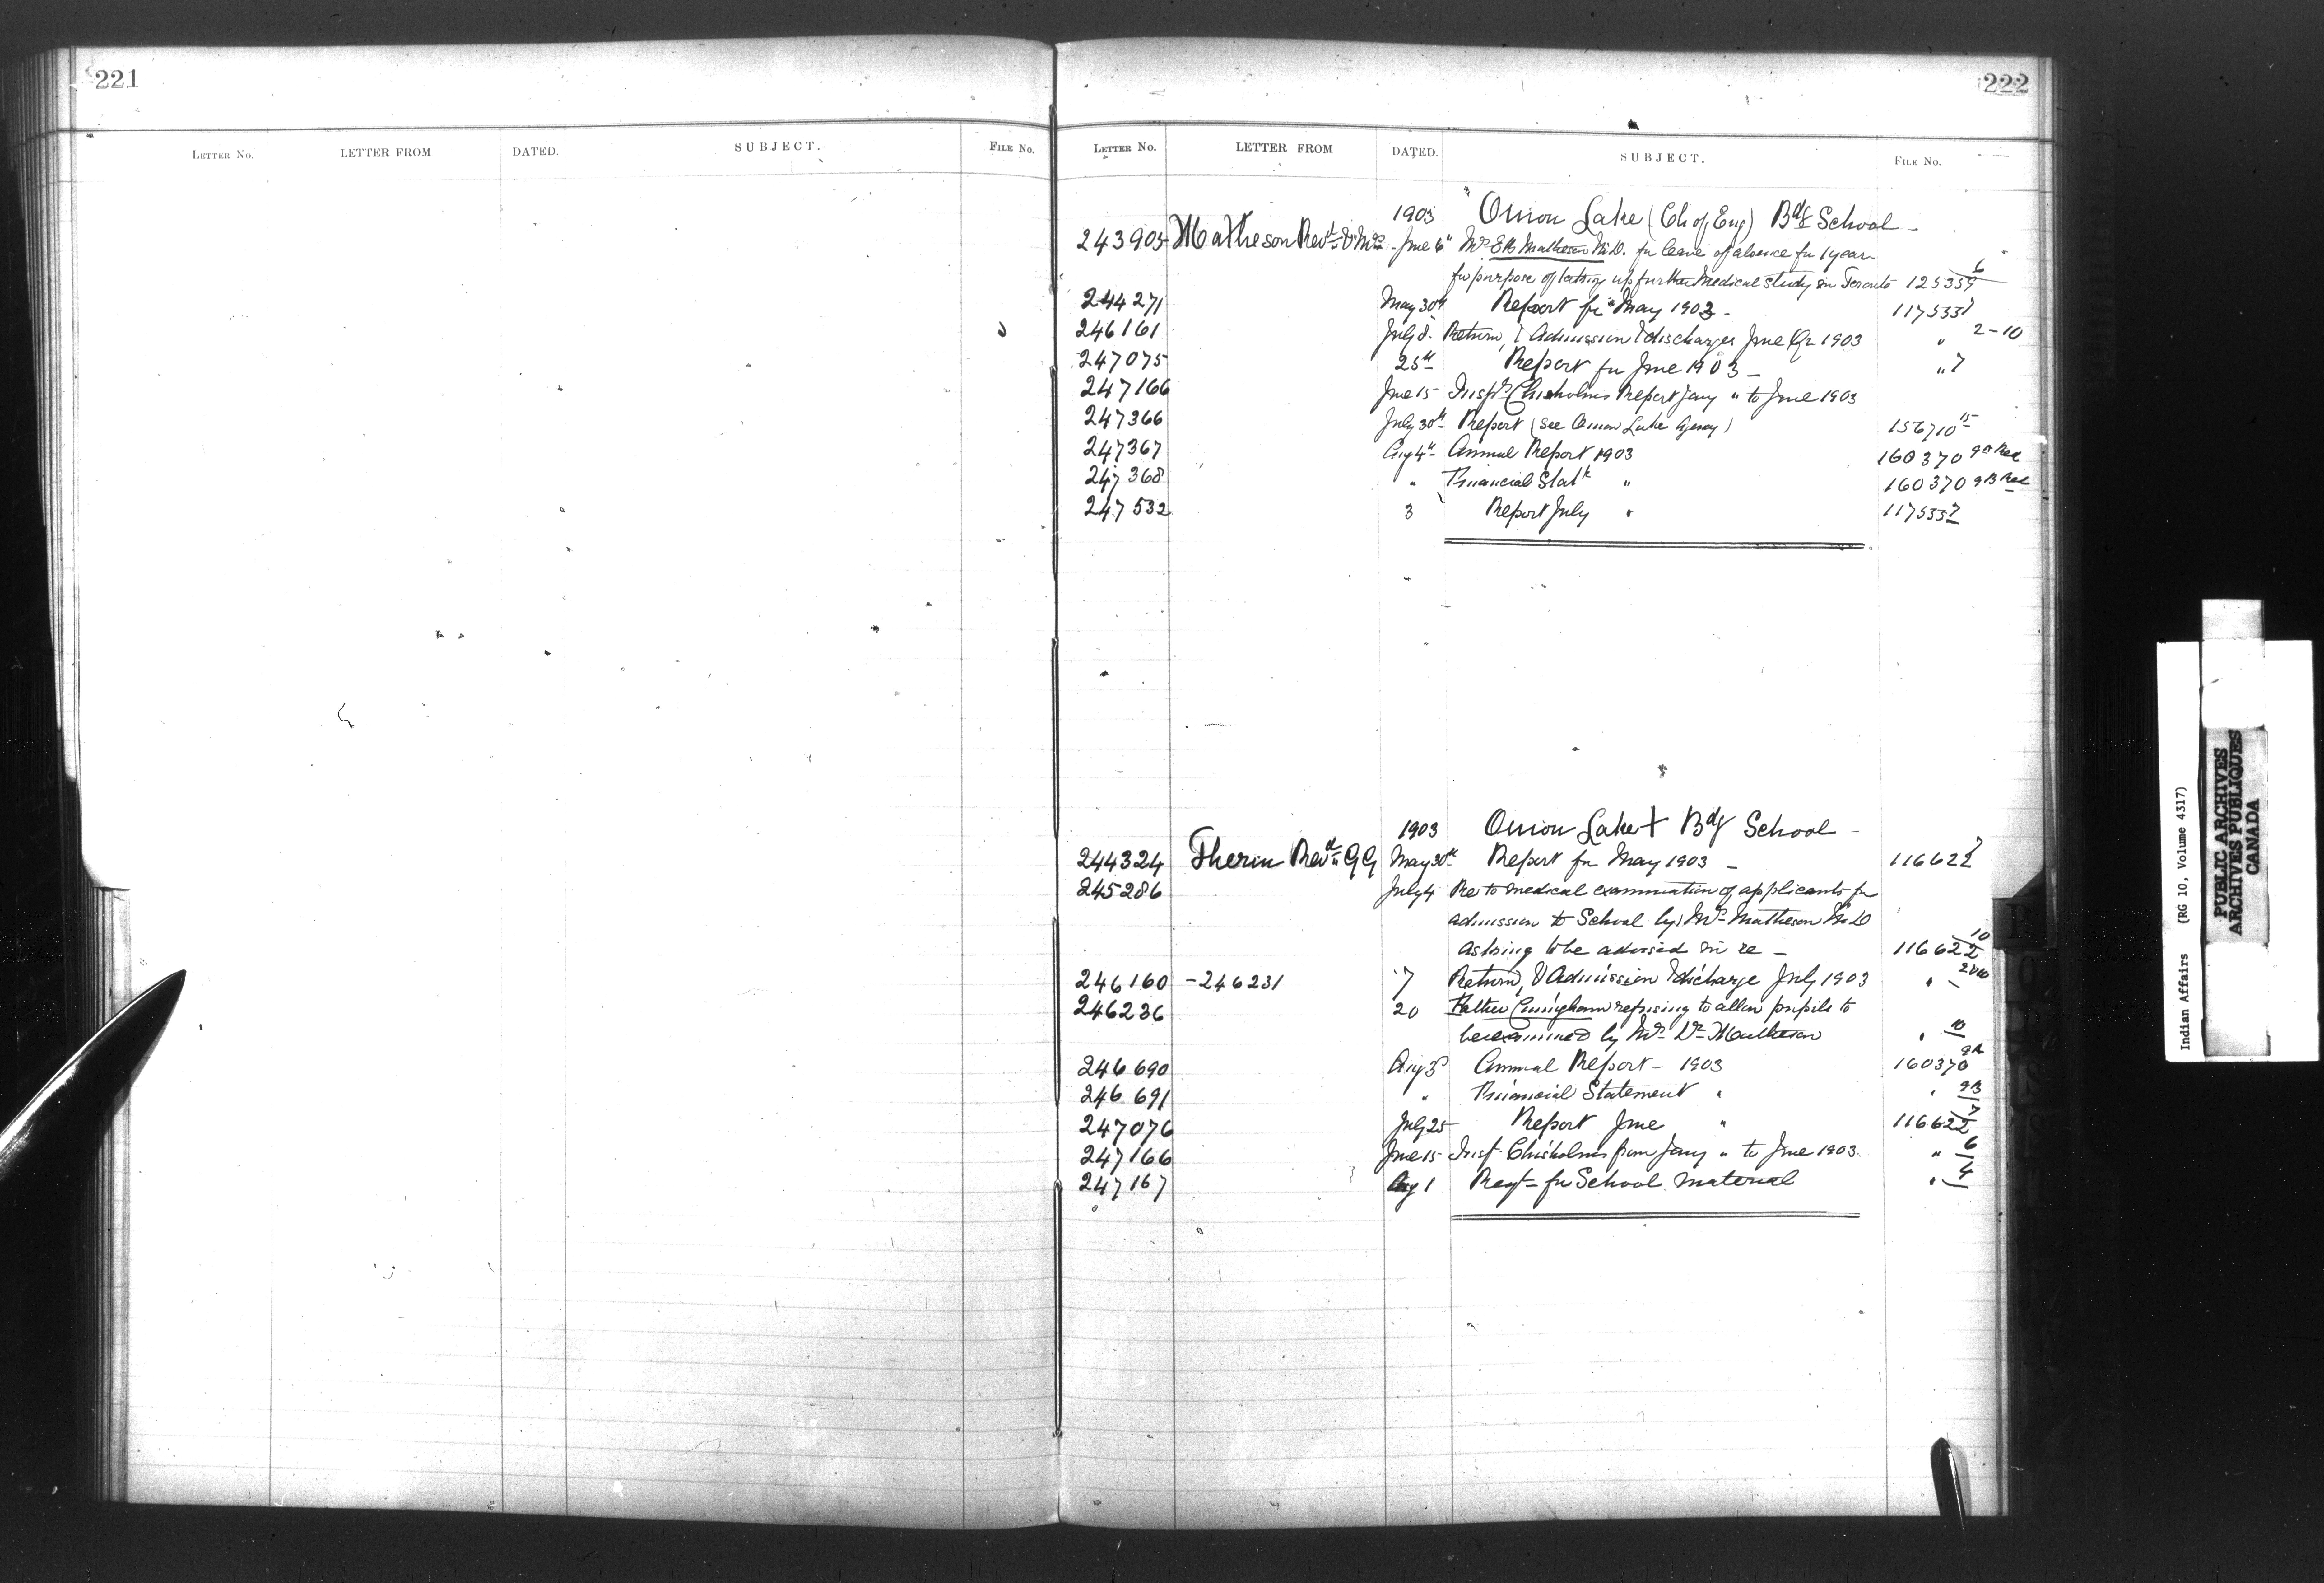 221
LETTER NO. LETTER FROM DATED. SUBJECT. FILE NO.
222
LETTER NO. LETTER FROM DATED. SUBJECT. FILE NO.
1903 Onion Lake (Ch of Eng) Bdg School
243905 Matheson Revd & Mrs June 6th Mrs EB Matheson M.D. for leave of absence for 1 year
for purpose of taking up further Medical study in Toronto 125359 6
244271 May 30th Report for May 1903 - 117533 7
246161 July 8 Return, & Admission & discharges June Qr 1903 " 2-10
247075 25th Report for June 1903 - " 7
247166 June 15 Insptr Chisholms Report Jany " to June 1903
247366 July 30th Report (see Onion Lake Agency) 156710 15
247367 Aug 4th Annual Report 1903 160370 9A
247368 " Financial Statt " 160370 9B
247532 3 Report July " 117533 7
1903 Onion Lake + Bdg School -
244324 Therien Revd GG May 30th Report for May 1903 - 116622 7
245286 July 4 Re to medical examination of applicants for
admission to School by Mrs Matheson M.D
asking to be advised in re - 116622 10
246160 - 246231 17 Return, & Admission & discharge July 1903 " 2&10
246236 20 Father Cunningham refusing to allow pupils to
be examined by Mrs Dr Matheson " 10
246690 Aug 3d Annual Report - 1903 160370 9A
246691 " Financial Statement " " 9B
247076 July 25 Report June " 116622 7
247166 June 15 Insp Chisholms from Jany " to June 1903 " 6
247167 Aug 1 Reqt - for School material " 4
Indian Affairs (RG 10, Volume 4317)
PUBLIC ARCHIVES
ARCHIVES PUBLIQUES
CANADA